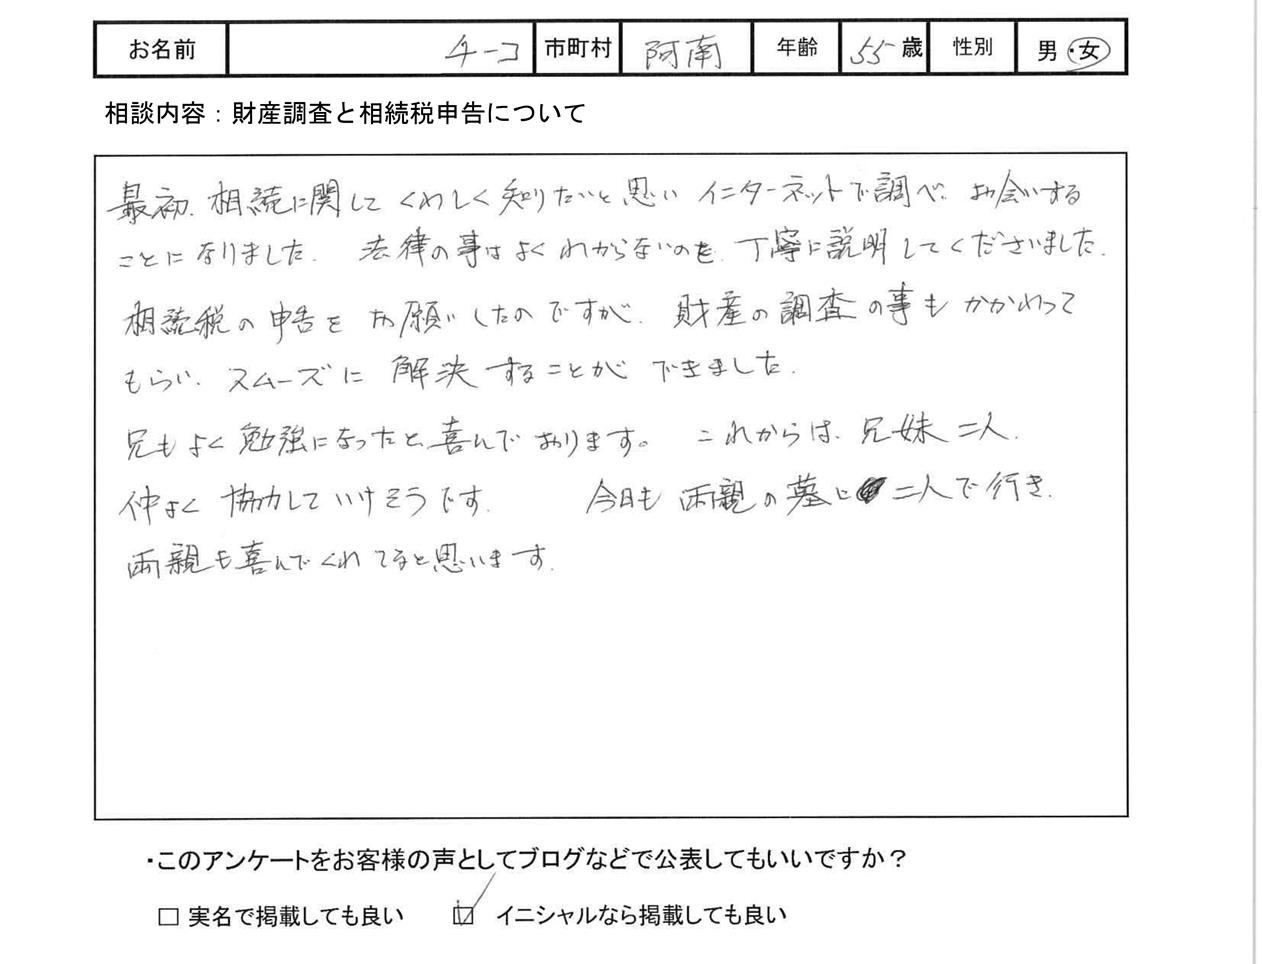 お名前 チーコ 市町村 阿南 年齢 55 歳 性別 男・女
相談内容：財産調査と相続税申告について
最初、相続に関してくわしく知りたいと思いインターネットで調べ、お会いする
ことになりました。 法律の事はよくわからないのを、丁寧に説明してくださいました。
相続税の申告をお願いしたのですが、財産の調査の事もかかわって
もらい、スムーズに解決することができました。
兄もよく勉強になったと、喜んでおります。 これからは、兄妹二人、
仲よく協力していけそうです。 今日も両親の墓に二人で行き、
両親も喜んでくれてると思います。
・このアンケートをお客様の声としてブログなどで公表してもいいですか？
□ 実名で掲載しても良い ☑ イニシャルなら掲載しても良い